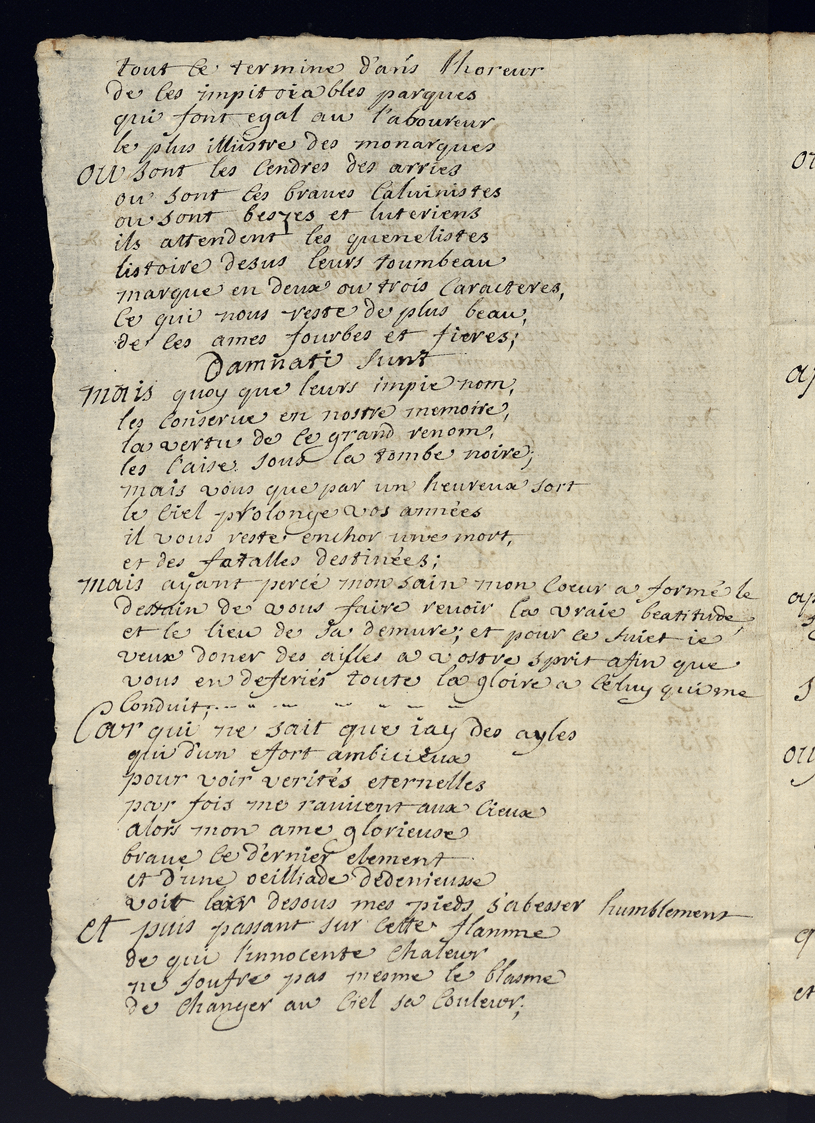 tout ce termine dans lhoreur
de ces impitoiables parques
qui font egal au l'aboureur
le plus illustre des monarques
ou sont les cendres des arries
ou sont ces braves caluinistes
ou sont beszes et luteriens
ils attendent les quenelistes
listoire desus leurs toumbeau
marque en deux ou trois caracteres,
ce qui nous reste de plus beau,
de ces ames fourbes et fieres;
Damnati sunt
mais quoy que leurs impie nom,
les conserue en nostre memoire,
la vertu de ce grand renom,
les l'aise sous la tombe noire;
mais vous que par un heureux sort
le ciel prolonge vos années
il vous reste enchor une mort,
et des fatalles destinées;
mais ayant percé mon sain mon coeur a formé le
dessain de vous faire reuoir la vraie beatitude,
et le lieu de sa demure; et pour ce suiet ie
veux doner des ailles a vostre sprit afin que
vous en deferiés toute la gloire a celuy qui me
conduit;
Car qui ne sait que iay des ayles
qui d'un efort ambicieux
pour voir verités eternelles
par fois me rauicent aux cieux
alors mon ame glorieuse
braue ce d'ernier element
et d'une oeilliade dedenieusse
voit lair desous mes pieds s'abesser humblement
et puis passant sur cette flamme
de qui l'innocente chaleur
ne soufre pas mesme le blasme
de changer au ciel sa couleur;
ou
ap
ap
ou
q
et